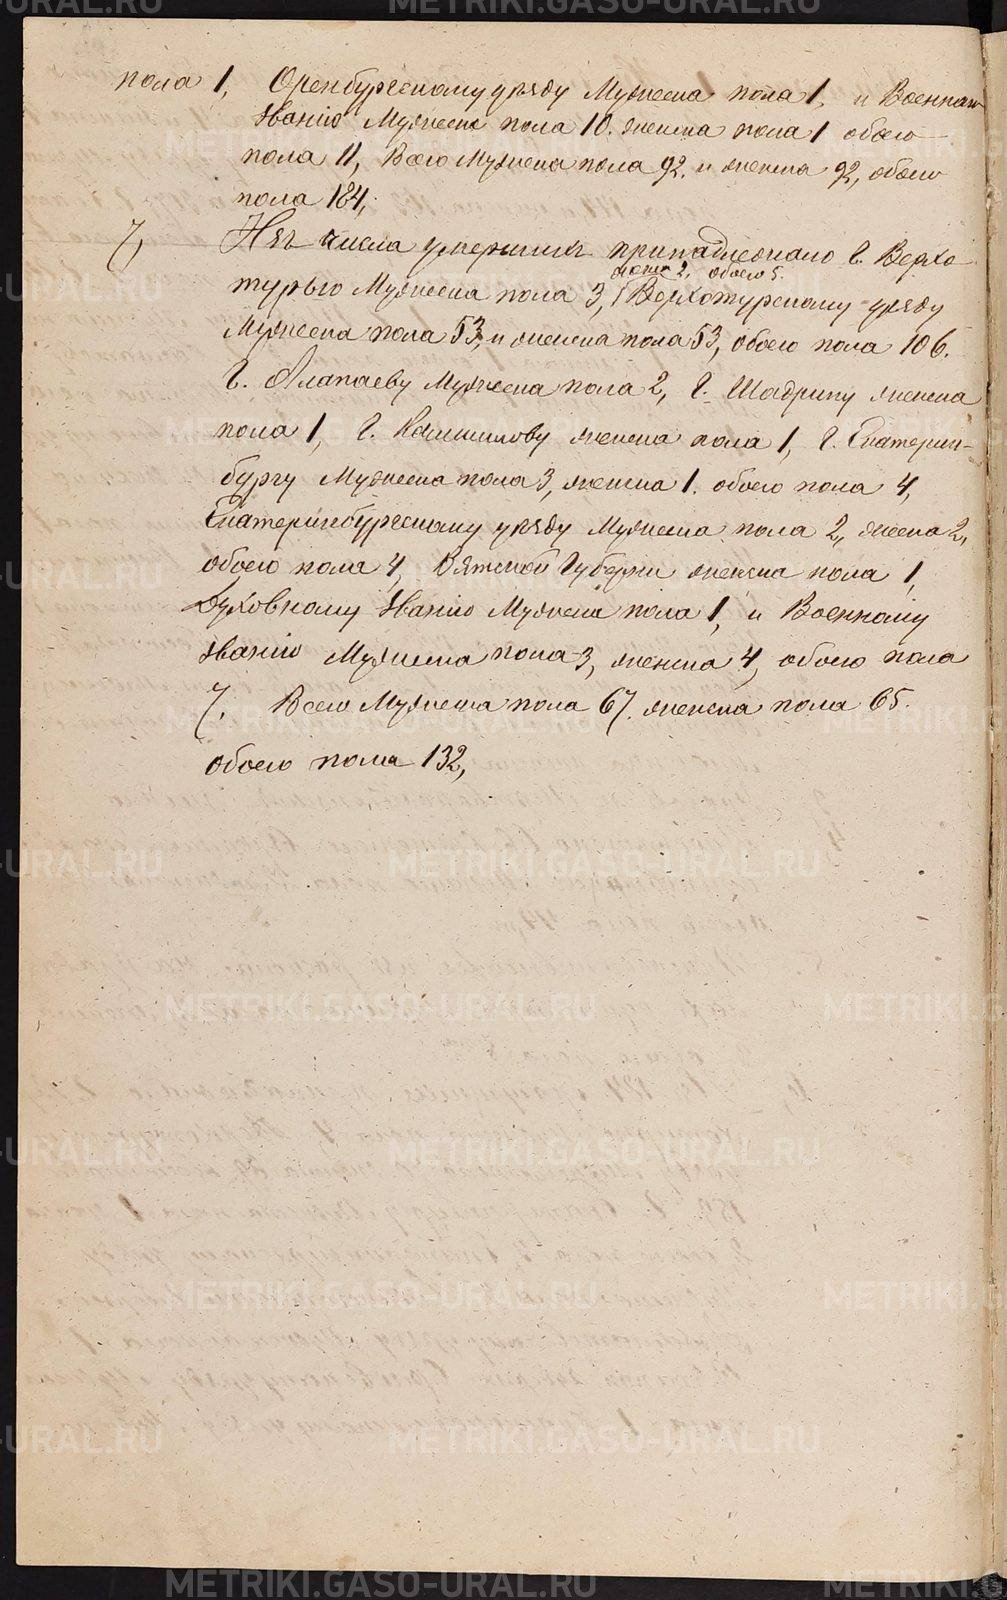 пола 1, Оренбургскому уѣзду Мужеска пола 1, и Военному
Званію Мужеска пола 10. женска пола 1 обоего
пола 11, Всего Мужеска пола 92. и женска 92, обоего
пола 184,
7, Изъ числа умершихъ принадлежало Г. Верхо-
женска 2, обоего 5.
турью Мужеска пола 3, Верхотурскому уѣзду
Мужеска пола 53, и женска пола 53, обоего пола 106.
Г. Алапаеву Мужеска пола 2, Г. Шадрину женска
пола 1, Г. Камышлову женска пола 1, Г. Екатерин-
бургу Мужеска пола 3, женска 1. обоего пола 4,
Екатеринбургскому уѣзду Мужеска пола 2, женска 2,
обоего пола 4, Вятской Губерніи женска пола 1,
Духовному Званію Мужеска пола 1, и Военному
Званію Мужеска пола 3, женска 4, обоего пола
7, Всего Мужеска пола 67. женска пола 65.
обоего пола 132,
METRIKI.GASO-URAL.RU